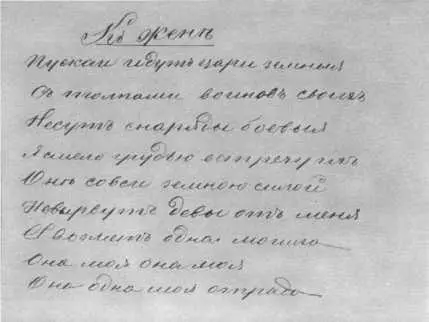 Къ женѣ
Пускай идутъ цари земныя
Съ толпами воиновъ своихъ
Несутъ снаряды боевыя
Я смело грудью встречу ихъ
Онѣ со всей земною силой
Не вырвутъ девы отъ меня
Возметъ одна могила
Она моя она моя
Она одна моя отрада